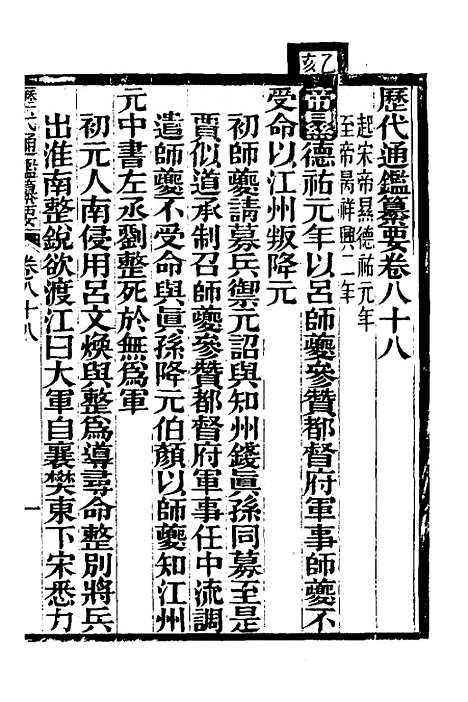 歷代通鑑纂要卷八十八
起宋帝㬎德祐元年
至帝昺祥興二年
乙亥
帝㬎德祐元年以呂師夔參贊都督府軍事師夔不
受命以江州叛降元
初師夔請募兵禦元詔與知州錢眞孫同募至是
賈似道承制召師夔參贊都督府軍事任中流調
遣師夔不受命與眞孫降元伯顏以師夔知江州
元中書左丞劉整死於無爲軍
初元人南侵用呂文煥與整爲導尋命整別將兵
出淮南整銳欲渡江曰大軍自襄樊東下宋悉力
歷代通鑑纂要 卷八十八 一